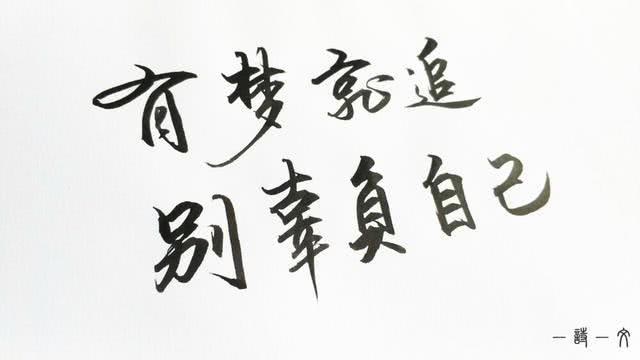 有梦就追
别辜负自己
一诗一文